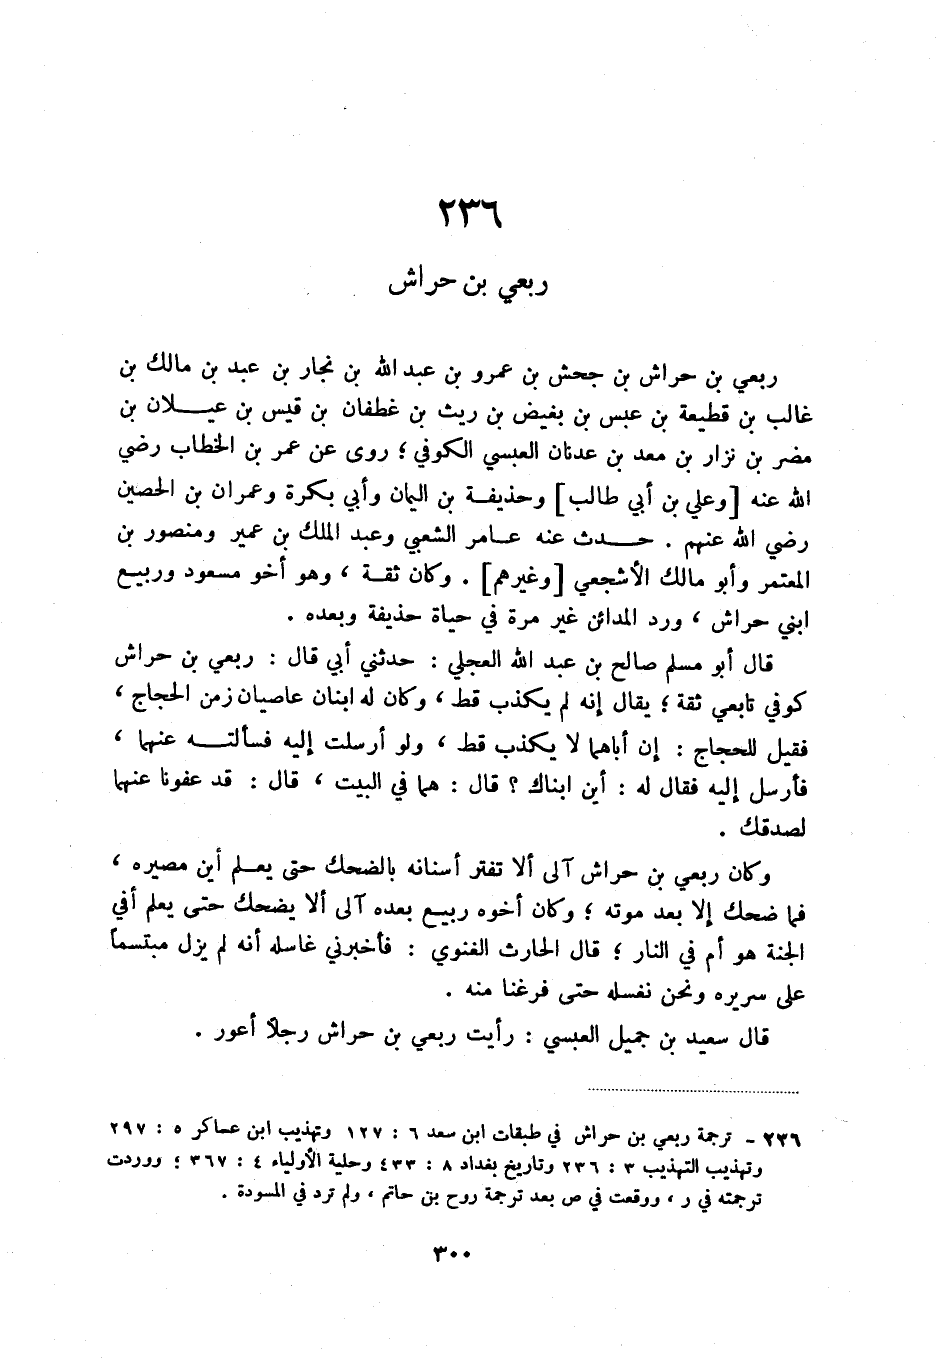 ٢٣٦
ربعي بن حراش
ربعي بن حراش بن جحش بن عمرو بن عبد الله بن نجار بن عبد بن مالك بن
غالب بن قطيعة بن عبس بن بغيض بن ريث بن غطفان بن قيس بن عيلان بن
مضر بن نزار بن معد بن عدنان العبسي الكوفي ؛ روى عن عمر بن الخطاب رضي
الله عنه [وعلي بن أبي طالب] وحذيفة بن اليمان وأبي بكرة وعمران بن الحصين
رضي الله عنهم . حدث عنه عامر الشعبي وعبد الملك بن عمير ومنصور بن
المعتمر وأبو مالك الأشجعي [وغيرهم] . وكان ثقة ، وهو أخو مسعود وربيع
ابني حراش ، ورد المدائن غير مرة في حياة حذيفة وبعده .
قال أبو مسلم صالح بن عبد الله العجلي : حدثني أبي قال : ربعي بن حراش
كوفي تابعي ثقة ؛ يقال إنه لم يكذب قط ، وكان له ابنان عاصيان زمن الحجاج ،
فقيل للحجاج : إن أباهما لا يكذب قط ، ولو أرسلت إليه فسألته عنهما ،
فأرسل إليه فقال له : أين ابناك ؟ قال : هما في البيت ، قال : قد عفونا عنهما
لصدقك .
وكان ربعي بن حراش آلى ألا تفتر أسنانه بالضحك حتى يعلم أين مصيره ،
فما ضحك إلا بعد موته ؛ وكان أخوه ربيع بعده آلى ألا يضحك حتى يعلم أفي
الجنة هو أم في النار ؛ قال الحارث الغنوي : فأخبرني غاسله أنه لم يزل مبتسماً
على سريره ونحن نغسله حتى فرغنا منه .
قال سعيد بن جميل العبسي : رأيت ربعي بن حراش رجلاً أعور .
٢٣٦ - ترجمة ربعي بن حراش في طبقات ابن سعد ٦ : ١٢٧ وتهذيب ابن عساكر ٥ : ٢٩٧
وتهذيب التهذيب ٣ : ٢٣٦ وتاريخ بغداد ٨ : ٤٣٣ وحلية الأولياء ٤ : ٣٦٧ ؛ ووردت
ترجمته في ر ، ووقعت في ص بعد ترجمة روح بن حاتم ، ولم ترد في المسودة .
٣٠٠